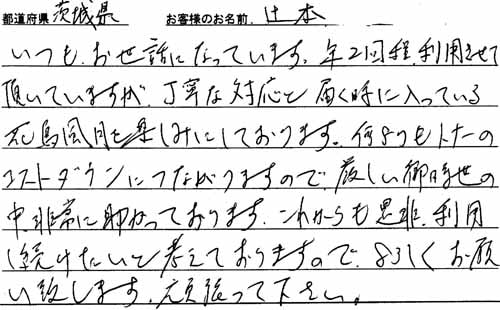 都道府県 茨城県 お客様のお名前. 辻本
いつも、お世話になっています。年2回程、利用させて
頂いていますが、丁寧な対応と届く時に入っている
花鳥風月を楽しみにしております。何よりもトナーの
コストダウンにつながりますので厳しい御時世の
中、非常に助かっております。これからも是非、利用
し続けたいと考えておりますので、よろしくお願
い致します。頑張って下さい。